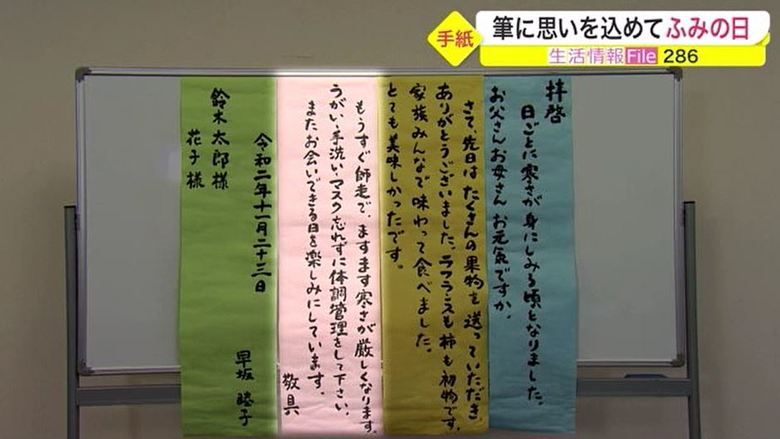 手紙
筆に思いを込めてふみの日
生活情報File 286
拝啓
日ごとに寒さが身にしみる頃となりました。
お父さんお母さん お元気ですか。
さて、先日はたくさんの果物を送っていただき
ありがとうございました。ラフランスも柿も初物です。
家族みんなで味わって食べました。
とても美味しかったです。
もうすぐ師走で、ますます寒さが厳しくなります。
うがい、手洗い、マスク忘れずに体調管理をして下さい。
またお会いできる日を楽しみにしています。
敬具
令和二年十一月二十三日
早坂 睦子
鈴木太郎様
花子様